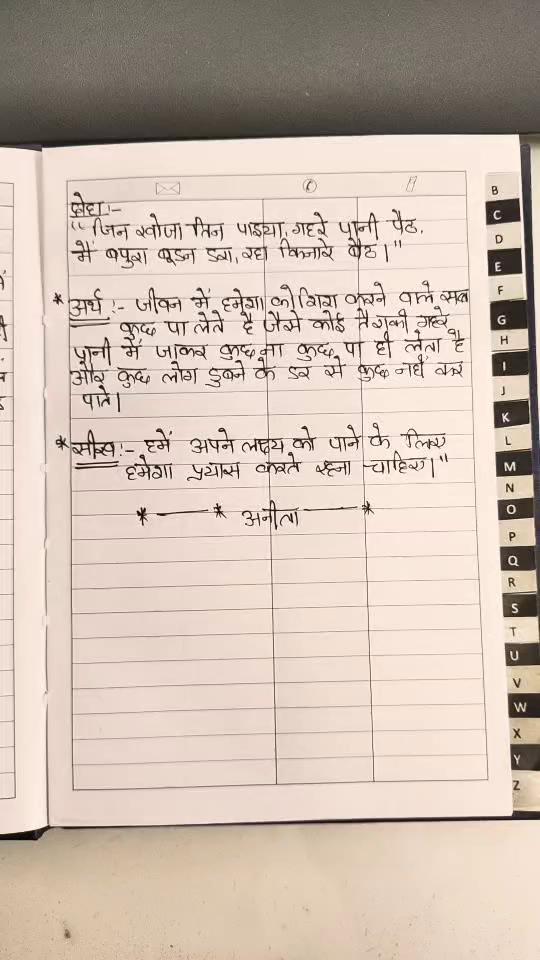 दोहा:-
“जिन खोजा तिन पाइया, गहरे पानी पैठ,
मैं बपुरा बूडन डरा, रहा किनारे बैठ।”
* अर्थ :- जीवन में हमेशा कोशिश करने वाले सब
कुछ पा लेते हैं जैसे कोई तैराकी गहरे
पानी में जाकर कुछ ना कुछ पा ही लेता है
और कुछ लोग डुबने के डर से कुछ नहीं कर
पाते।
* सीख :- हमें अपने लक्ष्य को पाने के लिए
हमेशा प्रयास करते रहना चाहिए।”
* —— * अनीता —— *
B
C
D
E
F
G
H
I
J
K
L
M
N
O
P
Q
R
S
T
U
V
W
X
Y
Z